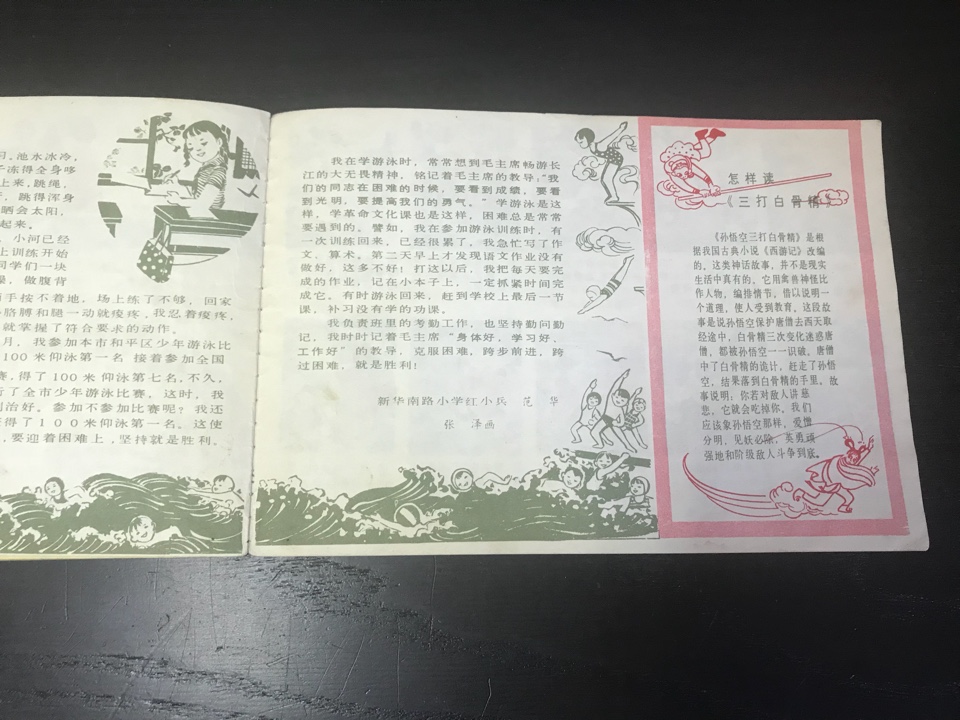 习。池水冰冷，
子冻得全身哆
上来，跳绳，
跳得浑身
晒会太阳，
起来。
小河已经
上训练开始
同学们一块
操，做腹背
两手按不着地，场上练了不够，回家
胳膊和腿一动就疼，我忍着疼，
就掌握了符合要求的动作。
月，我参加本市和平区少年游泳比
100米仰泳第一名 接着参加全国
赛，得了100米仰泳第七名，不久，
行了全市少年游泳比赛，这时，我
治好。参加不参加比赛呢？我还
获得了100米仰泳第一名。这使
，要迎着困难上，坚持就是胜利。
我在学游泳时，常常想到毛主席畅游长
江的大无畏精神，铭记着毛主席的教导，“我
们的同志在困难的时候，要看到成绩，要看
到光明，要提高我们的勇气。”学游泳是这
样，学革命文化课也是这样，困难总是常常
要遇到的。譬如，我在参加游泳训练时，有
一次训练回来，已经很累了，我急忙写了作
文、算术。第二天早上才发现语文作业没有
做好，这多不好！打这以后，我把每天要完
成的作业，记在小本子上，一定抓紧时间完
成它。有时游泳回来，赶到学校上最后一节
课，补习没有学的功课。
我负责班里的考勤工作，也坚持勤问勤
记，我时时记着毛主席“身体好，学习好，
工作好”的教导，克服困难，跨步前进，跨
过困难，就是胜利！
新华南路小学红小兵 范 华
张 泽画
怎样读
《三打白骨精》
《孙悟空三打白骨精》是根
据我国古典小说《西游记》改编
的，这类神话故事，并不是现实
生活中真有的，它用禽兽神怪比
作人物，编排情节，借以说明一
个道理，使人受到教育，这段故
事是说孙悟空保护唐僧去西天取
经途中，白骨精三次变化迷惑唐
僧，都被孙悟空一一识破，唐僧
中了白骨精的诡计，赶走了孙悟
空，结果落到白骨精的手里。故
事说明：你若对敌人讲慈
悲，它就会吃掉你，我们
应该象孙悟空那样，爱憎
分明，见妖必除，英勇顽
强地和阶级敌人斗争到底。